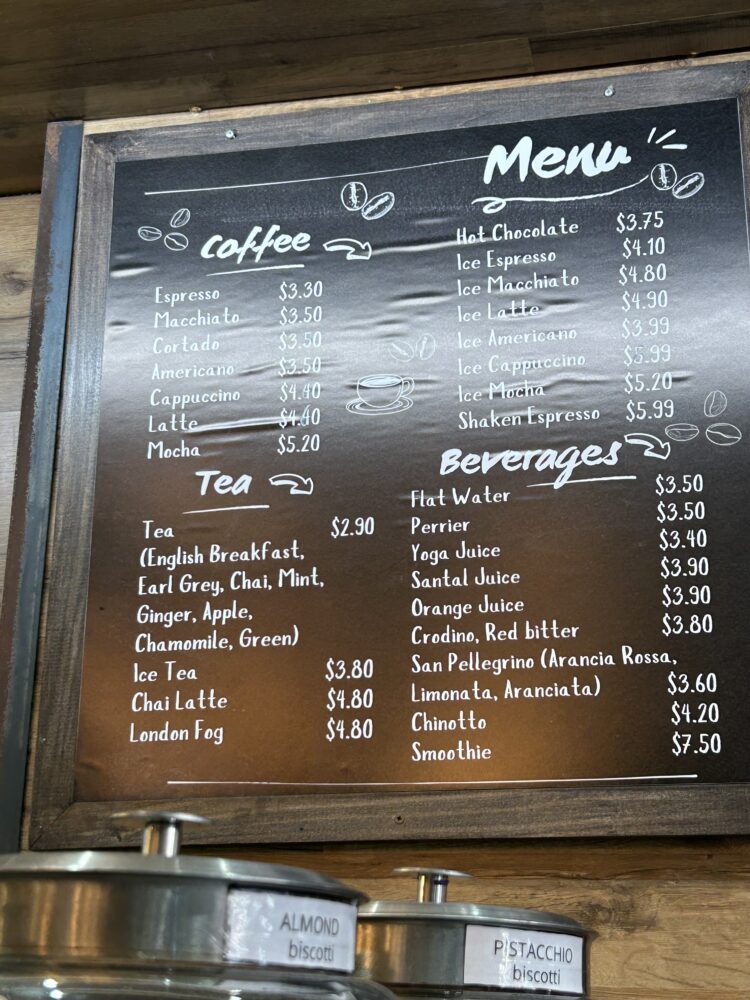 Menu
Coffee
Espresso $3.30
Macchiato $3.50
Cortado $3.50
Americano $3.50
Cappuccino $4.40
Latte $4.40
Mocha $5.20
Tea
Tea $2.90
(English Breakfast,
Earl Grey, Chai, Mint,
Ginger, Apple,
Chamomile, Green)
Ice Tea $3.80
Chai Latte $4.80
London Fog $4.80
Hot Chocolate $3.75
Ice Espresso $4.10
Ice Macchiato $4.80
Ice Latte $4.90
Ice Americano $3.99
Ice Cappuccino $5.99
Ice Mocha $5.20
Shaken Espresso $5.99
Beverages
Flat Water $3.50
Perrier $3.50
Yoga Juice $3.40
Santal Juice $3.90
Orange Juice $3.90
Crodino, Red bitter $3.80
San Pellegrino (Arancia Rossa,
Limonata, Aranciata) $3.60
Chinotto $4.20
Smoothie $7.50
ALMOND
biscotti
PISTACCHIO
biscotti